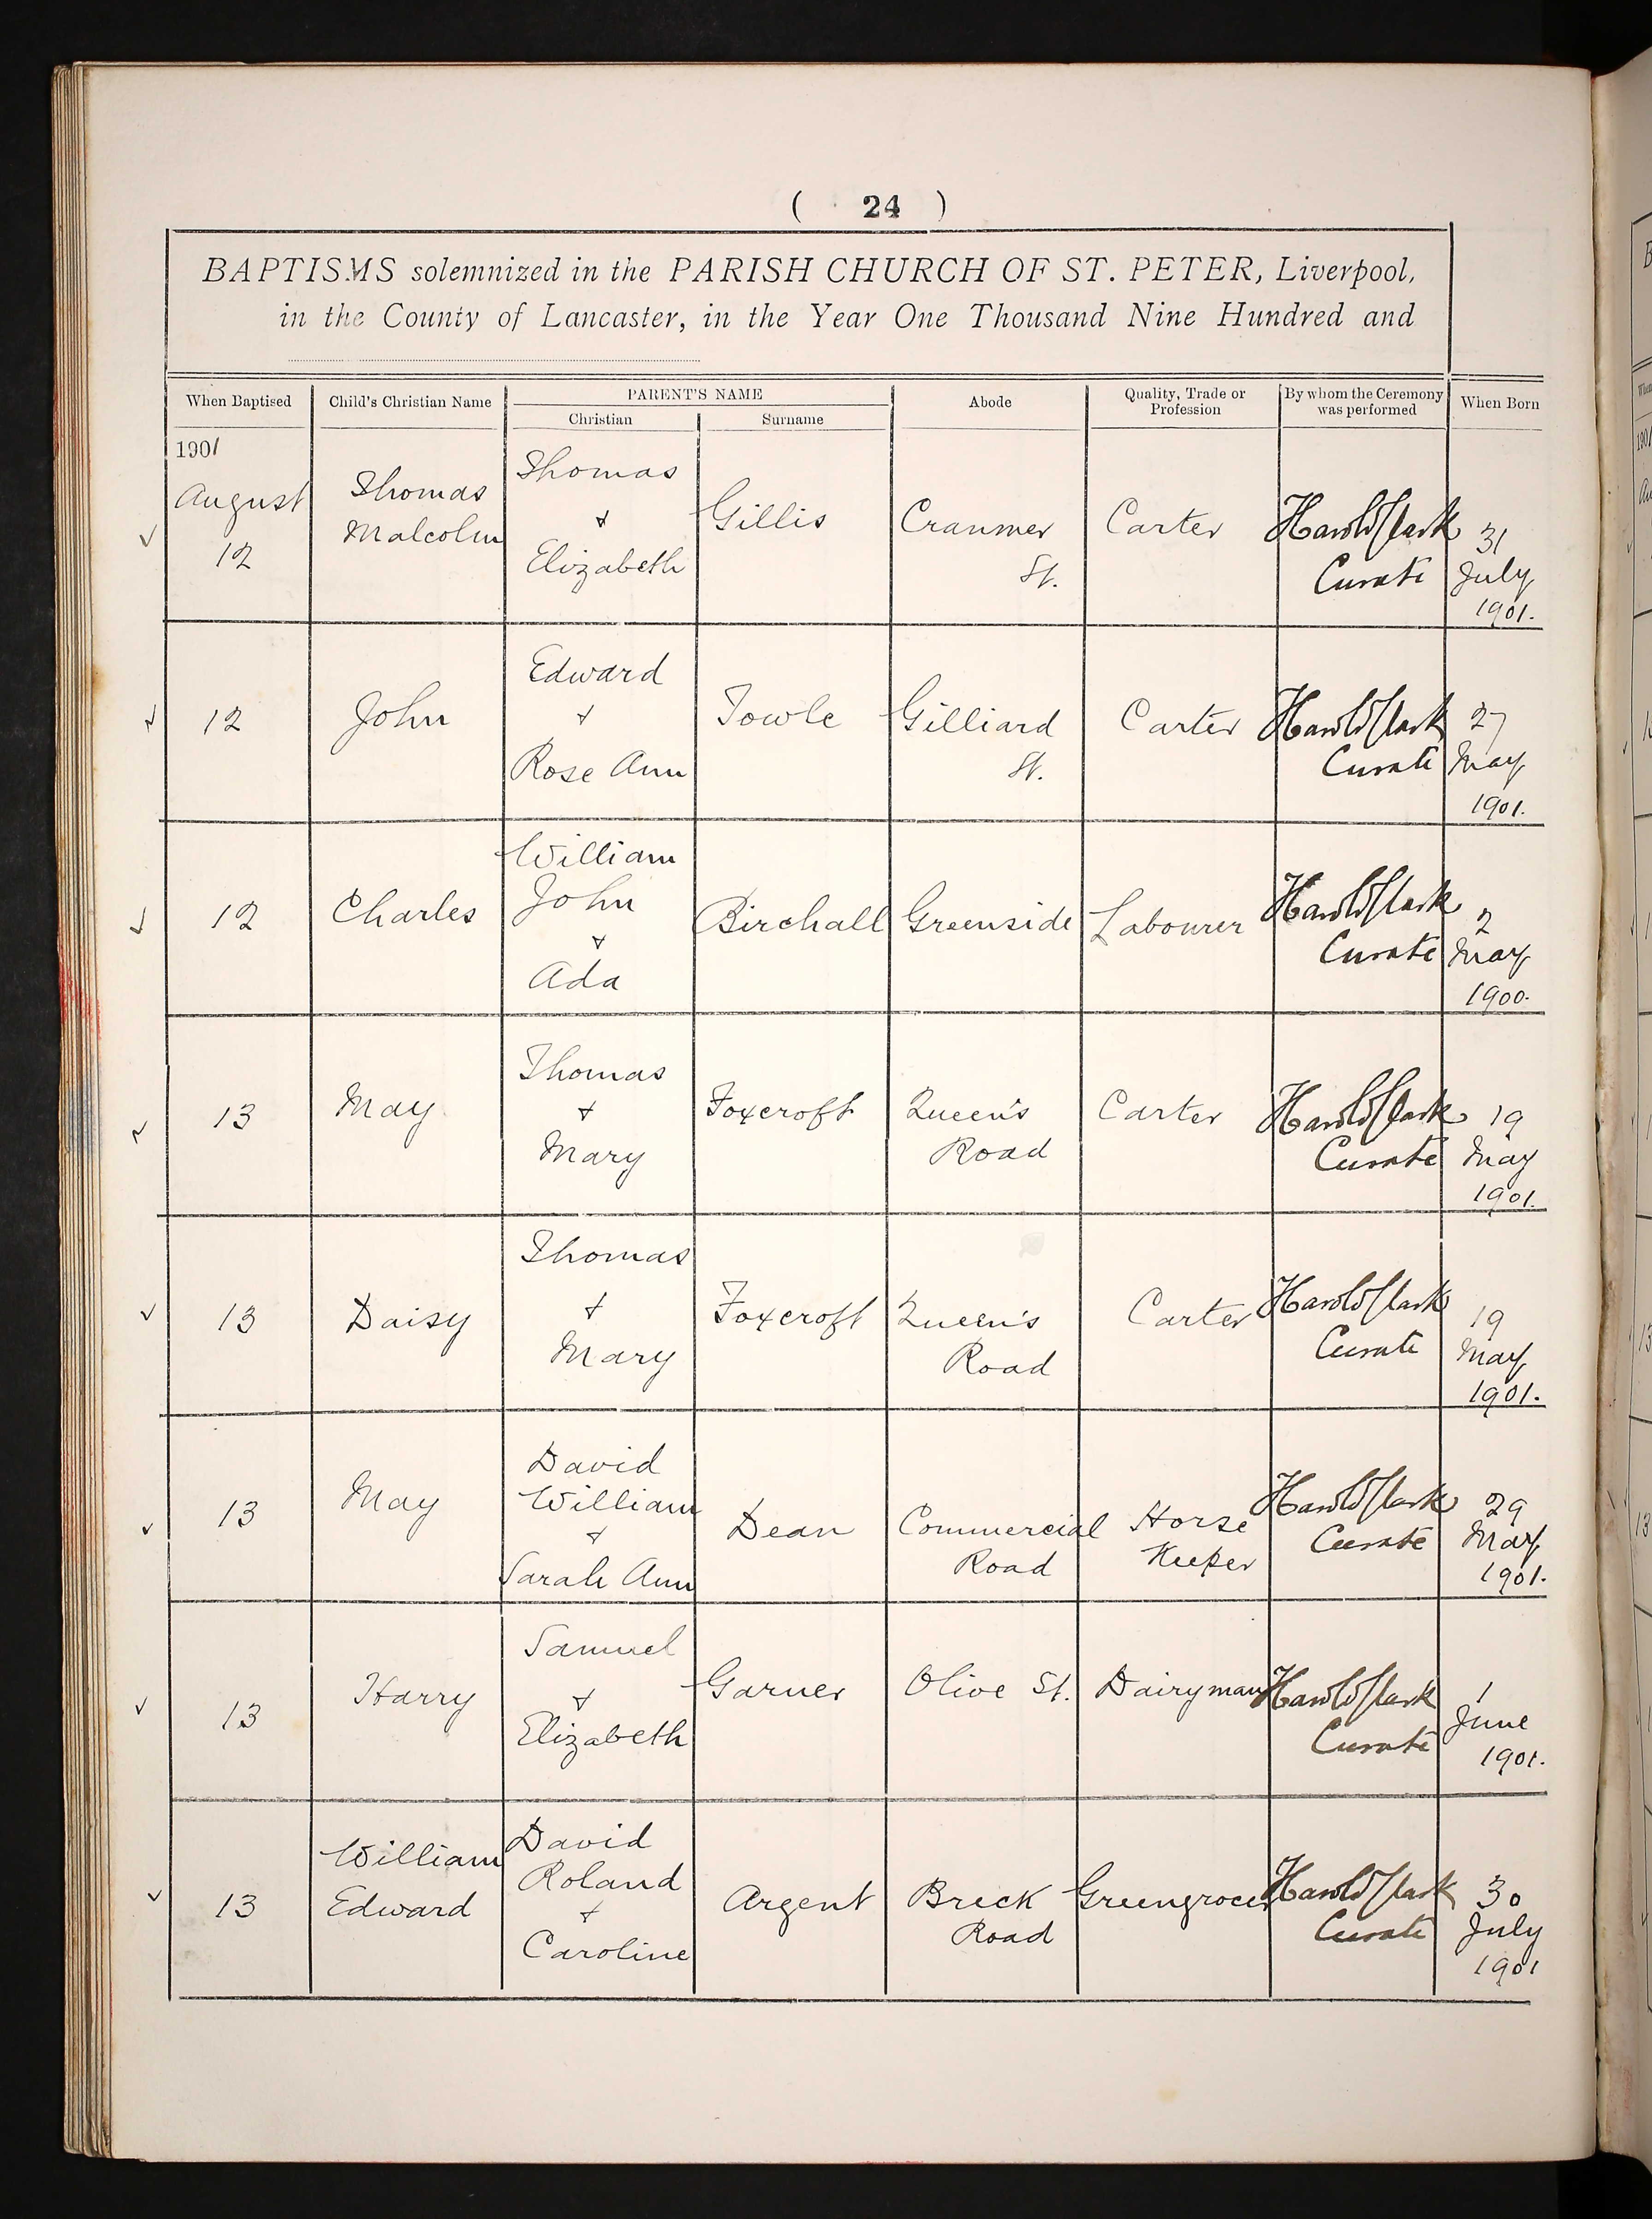 ( 24 )
BAPTISMS solemnized in the PARISH CHURCH OF ST. PETER, Liverpool,
in the County of Lancaster, in the Year One Thousand Nine Hundred and
When Baptised
Child's Christian Name
PARENT'S NAME
Christian
Surname
Abode
Quality, Trade or
Profession
By whom the Ceremony
was performed
When Born
1901
August
12
Thomas
Malcolm
Thomas
&
Elizabeth
Gillis
Cranmer
St.
Carter
Harold Clark
Curate
31
July
1901.
12
John
Edward
&
Rose Ann
Towle
Gilliard
St.
Carter
Harold Clark
Curate
27
May
1901.
12
Charles
William
John
&
Ada
Birchall
Greenside
Labourer
Harold Clark
Curate
2
May
1900.
13
May
Thomas
&
Mary
Foxcroft
Queen's
Road
Carter
Harold Clark
Curate
19
May
1901.
13
Daisy
Thomas
&
Mary
Foxcroft
Queen's
Road
Carter
Harold Clark
Curate
19
May
1901.
13
May
David
William
&
Sarah Ann
Dean
Commercial
Road
Horse
Keeper
Harold Clark
Curate
29
May
1901.
13
Harry
Samuel
&
Elizabeth
Garner
Olive St.
Dairyman
Harold Clark
Curate
1
June
1901.
13
William
Edward
David
Roland
&
Caroline
Argent
Breck
Road
Greengrocer
Harold Clark
Curate
30
July
1901